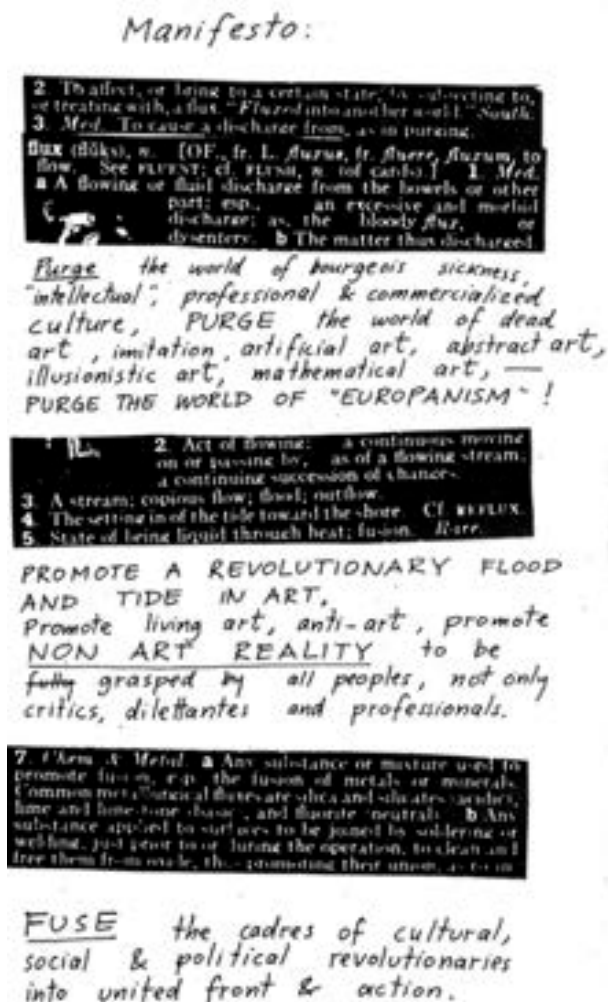 Manifesto:
2. To affect, or bring to a certain state, by subjecting to,
or treating with, a flux. "Fluxed into another world." South.
3. Med. To cause a discharge from, as in purging.
flux (flŭks), n. [OF., fr. L. fluxus, fr. fluere, fluxum, to
flow. See FLUENT; cf. FLUSH, n. (of cards).] 1. Med.
a A flowing or fluid discharge from the bowels or other
part; esp., an excessive and morbid
discharge; as, the bloody flux, or
dysentery. b The matter thus discharged
Purge the world of bourgeois sickness,
"intellectual", professional & commercialized
culture, PURGE the world of dead
art, imitation, artificial art, abstract art,
illusionistic art, mathematical art, —
PURGE THE WORLD OF "EUROPANISM"!
2. Act of flowing: a continuous moving
on or passing by, as of a flowing stream;
a continuing succession of changes.
3. A stream; copious flow; flood; outflow.
4. The setting in of the tide toward the shore. Cf. REFLUX.
5. State of being liquid through heat; fusion. Rare.
PROMOTE A REVOLUTIONARY FLOOD
AND TIDE IN ART,
Promote living art, anti-art, promote
NON ART REALITY to be
fully grasped by all peoples, not only
critics, dilettantes and professionals.
7. Chem. & Metal. a Any substance or mixture used to
promote fusion, esp. the fusion of metals or minerals.
Common metallurgical fluxes are silica and silicates (acidic),
lime and limestone (basic), and fluorite (neutral). b Any
substance applied to surfaces to be joined by soldering or
welding, just prior to or during the operation, to clean and
free them from oxide, thus promoting their union, as rosin.
FUSE the cadres of cultural,
social & political revolutionaries
into united front & action.